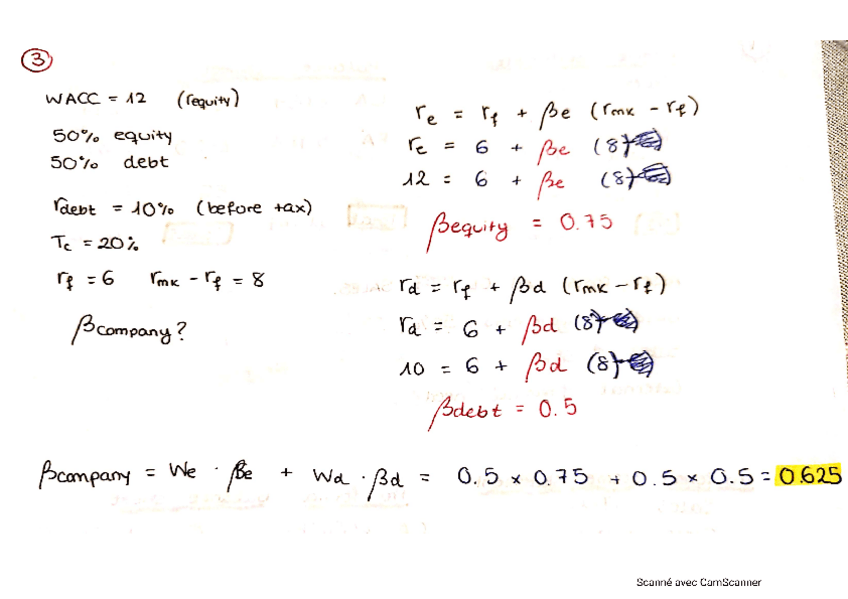 3
WACC = 12 (requity)
50% equity
50% debt
rdebt = 10% (before tax)
Tc = 20%
rf = 6 rmk - rf = 8
βcompany?
re = rf + βe (rmk - rf)
re = 6 + βe (8)
12 = 6 + βe (8)
βequity = 0.75
rd = rf + βd (rmk - rf)
rd = 6 + βd (8)
10 = 6 + βd (8)
βdebt = 0.5
βcompany = We · βe + Wd · βd = 0.5 × 0.75 + 0.5 × 0.5 = 0.625
Scanné avec CamScanner